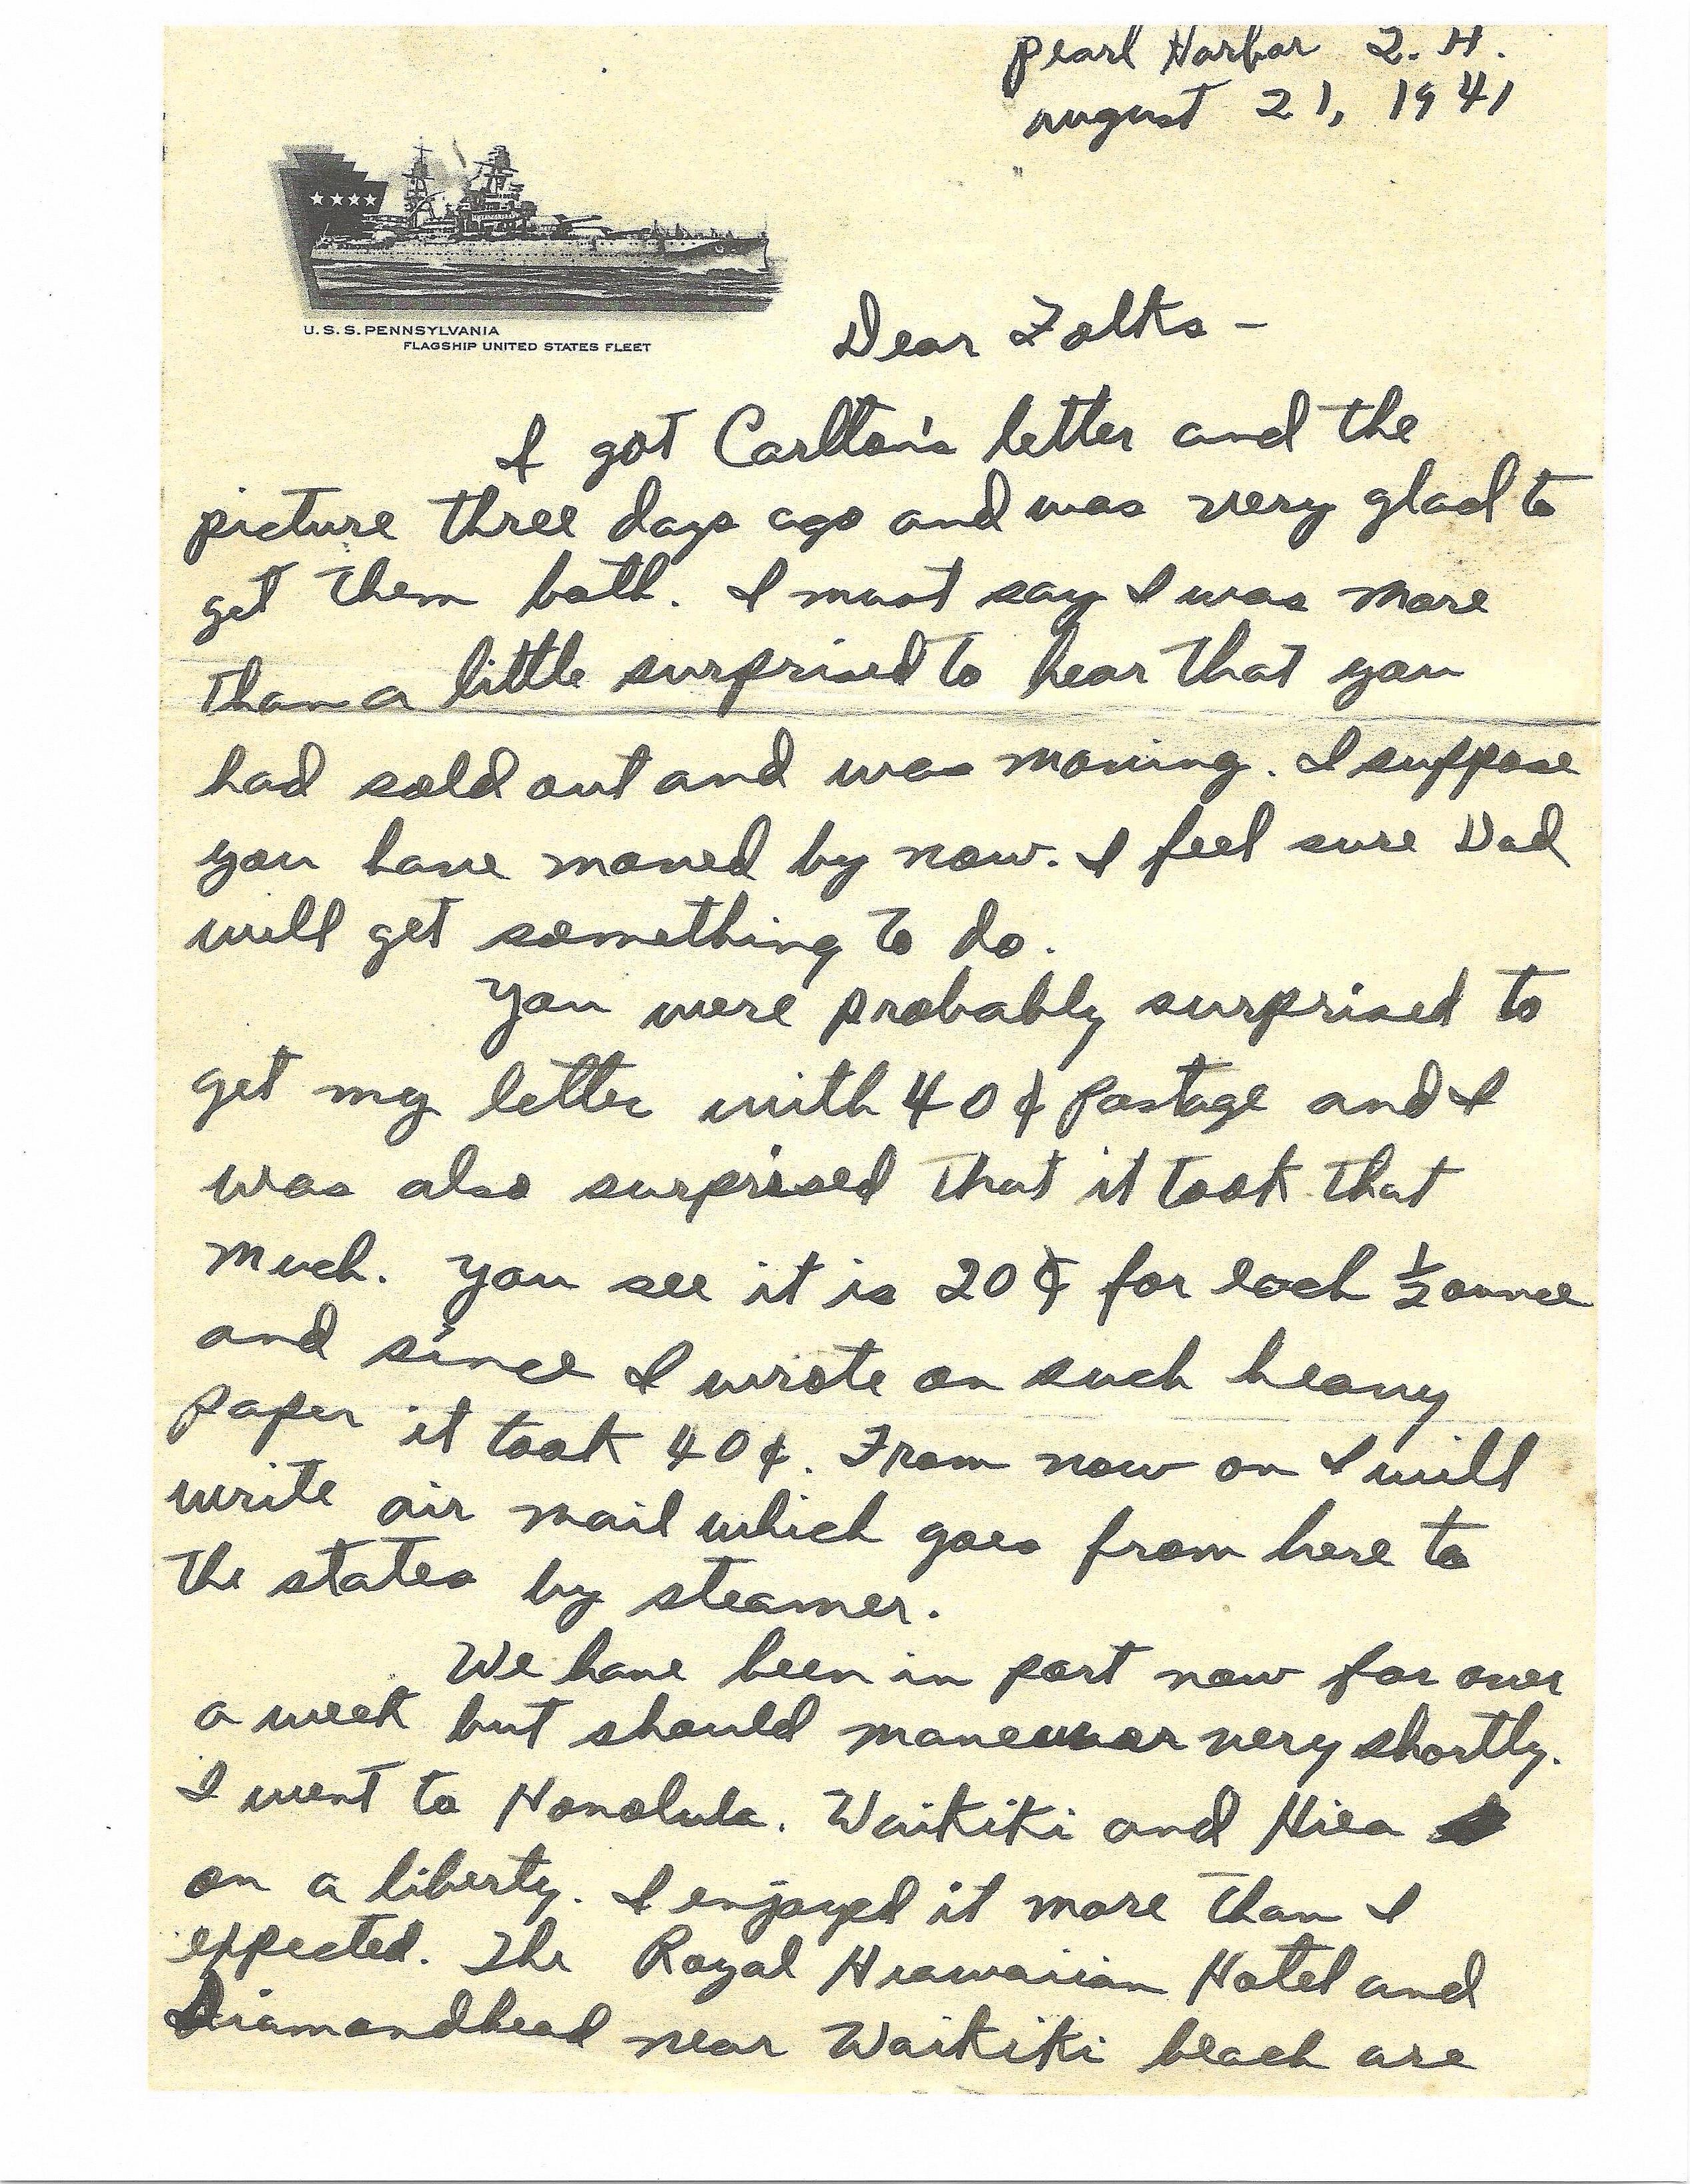 Pearl Harbor T. H.
August 21, 1941
U.S.S. PENNSYLVANIA
FLAGSHIP UNITED STATES FLEET
Dear Folks –
I got Carlton's letter and the
picture three days ago and was very glad to
get them both. I must say I was more
than a little surprised to hear that you
had sold out and was moving. I suppose
you have moved by now. I feel sure Dad
will get something to do.
You were probably surprised to
get my letter with 40¢ postage and I
was also surprised that it took that
much. You see it is 20¢ for each ½ ounce
and since I wrote on such heavy
paper it took 40¢. From now on I will
write air mail which goes from here to
the states by steamer.
We have been in port now for over
a week but should maneuver very shortly.
I went to Honolulu. Waikiki and
on a liberty. I enjoyed it more than I
expected. The Royal Hiawaiian Hotel and
Diamondhead near Waikiki beach are